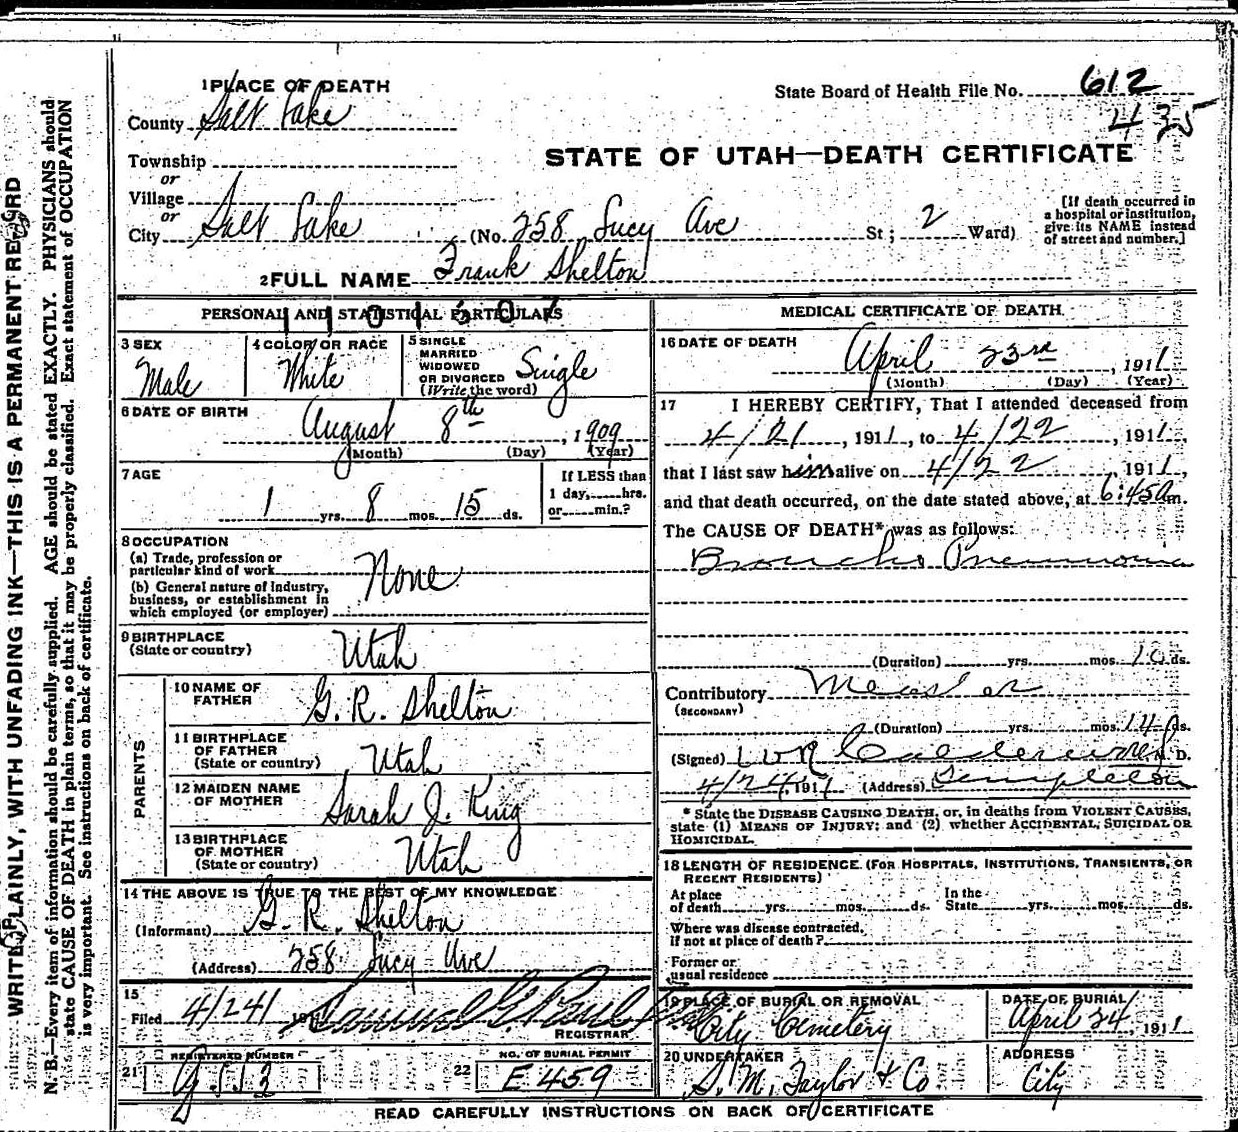 1 PLACE OF DEATH
County Salt Lake
State Board of Health File No. 612
435
STATE OF UTAH—DEATH CERTIFICATE
Township
or
Village
or
City Salt Lake (No. 258 Lucy Ave St; 2 Ward)
[If death occurred in
a hospital or institution,
give its NAME instead
of street and number.]
2 FULL NAME Frank Shelton
PERSONAL AND STATISTICAL PARTICULARS
3 SEX
Male
4 COLOR OR RACE
White
5 SINGLE
MARRIED
WIDOWED
OR DIVORCED
(Write the word)
Single
6 DATE OF BIRTH
August 8th, 1909
(Month) (Day) (Year)
7 AGE
1 yrs. 8 mos. 15 ds.
If LESS than
1 day,......hrs.
or......min.?
8 OCCUPATION
(a) Trade, profession or
particular kind of work None
(b) General nature of industry,
business, or establishment in
which employed (or employer)
9 BIRTHPLACE
(State or country) Utah
PARENTS
10 NAME OF
FATHER G. R. Shelton
11 BIRTHPLACE
OF FATHER
(State or country) Utah
12 MAIDEN NAME
OF MOTHER Sarah J. King
13 BIRTHPLACE
OF MOTHER
(State or country) Utah
14 THE ABOVE IS TRUE TO THE BEST OF MY KNOWLEDGE
(Informant) G. R. Shelton
(Address) 258 Lucy Ave
15
Filed 4/24/ 191
REGISTRAR
REGISTERED NUMBER
21
NO. OF BURIAL PERMIT
22 E 459
MEDICAL CERTIFICATE OF DEATH.
16 DATE OF DEATH
April 23rd, 1911
(Month) (Day) (Year)
17 I HEREBY CERTIFY, That I attended deceased from
4/21, 1911, to 4/22, 1911,
that I last saw him alive on 4/22, 1911,
and that death occurred, on the date stated above, at 6:45 am.
The CAUSE OF DEATH* was as follows:
Broncho Pneumonia
(Duration) yrs. mos. 10 ds.
Contributory Measles
(SECONDARY)
(Duration) yrs. mos. 14 ds.
(Signed) M. D.
4/24 1911 (Address) Templeton
* State the DISEASE CAUSING DEATH, or, in deaths from VIOLENT CAUSES,
state (1) MEANS OF INJURY; and (2) whether ACCIDENTAL, SUICIDAL OR
HOMICIDAL.
18 LENGTH OF RESIDENCE (FOR HOSPITALS, INSTITUTIONS, TRANSIENTS, OR
RECENT RESIDENTS)
At place
of death......yrs......mos......ds.
In the
State......yrs......mos......ds.
Where was disease contracted,
if not at place of death?
Former or
usual residence
19 PLACE OF BURIAL OR REMOVAL
City Cemetery
DATE OF BURIAL
April 24, 1911
20 UNDERTAKER
S. M. Taylor & Co
ADDRESS
City
READ CAREFULLY INSTRUCTIONS ON BACK OF CERTIFICATE
WRITE PLAINLY, WITH UNFADING INK—THIS IS A PERMANENT RECORD
N. B.—Every item of information should be carefully supplied. AGE should be stated EXACTLY. PHYSICIANS should
state CAUSE OF DEATH in plain terms, so that it may be properly classified. Exact statement of OCCUPATION
is very important. See instructions on back of certificate.